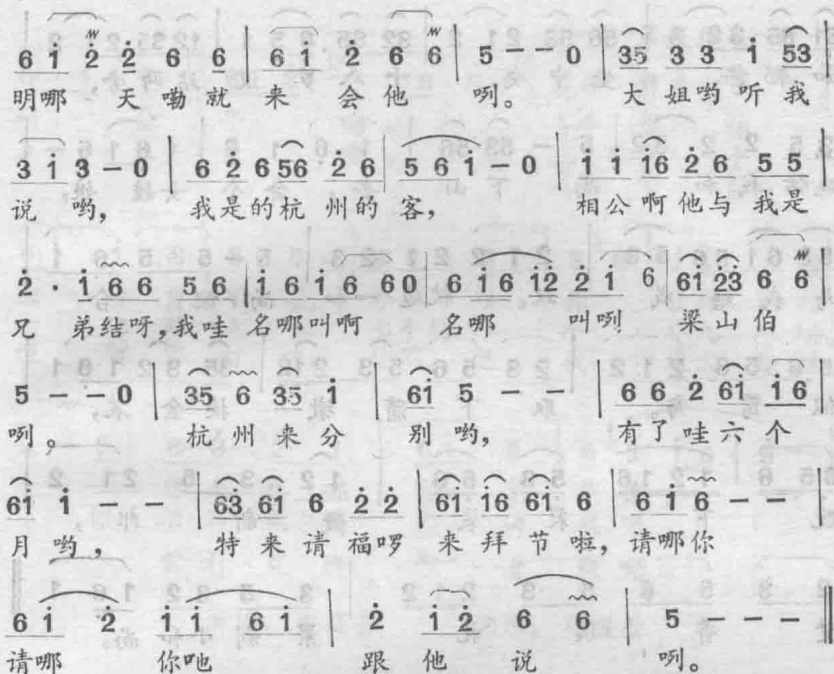 6 i 2 2 6 6 | 6 i 2 6 6 | 5 – – 0 | 35 3 3 i 53 |
明哪 天嘞就 来 会他 咧。 大姐哟听我
3 i 3 – 0 | 6 2 6 56 2 6 | 5 6 i – 0 | i i i6 2 6 5 5 |
说 哟, 我是的杭州的客, 相公啊他与我是
2 · i 6 6 5 6 | i 6 i 6 6 0 | 6 i 6 i2 2 i 6 | 6i 23 6 6 |
兄 弟结呀,我哇 名哪叫啊 名哪 叫咧 梁山伯
5 – – 0 | 35 6 35 i | 6i 5 – – | 6 6 2 6i i6 |
咧。 杭州来分 别哟, 有了哇六个
6i i – – | 63 6i 6 2 2 | 6i i6 6i 6 | 6 i 6 – – |
月哟, 特来请福啰 来拜节啦,请哪你
6 i 2 i i 6 i | 2 i 2 6 6 | 5 – – – ‖
请哪 你吔 跟他 说 咧。